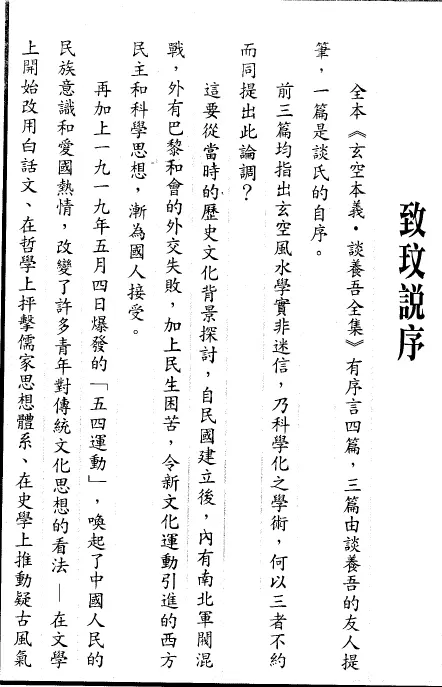 致玟説序
全本《玄空本義·談養吾全集》有序言四篇，三篇由談養吾的友人提
筆，一篇是談氏的自序。
前三篇均指出玄空風水學實非迷信，乃科學化之學術，何以三者不約
而同提出此論調？
這要從當時的歷史文化背景探討，自民國建立後，內有南北軍閥混
戰，外有巴黎和會的外交失敗，加上民生困苦，令新文化運動引進的西方
民主和科學思想，漸為國人接受。
再加上一九一九年五月四日爆發的「五四運動」，喚起了中國人民的
民族意識和愛國熱情，改變了許多青年對傳統文化思想的看法——在文學
上開始改用白話文、在哲學上抨擊儒家思想體系、在史學上推動疑古風氣